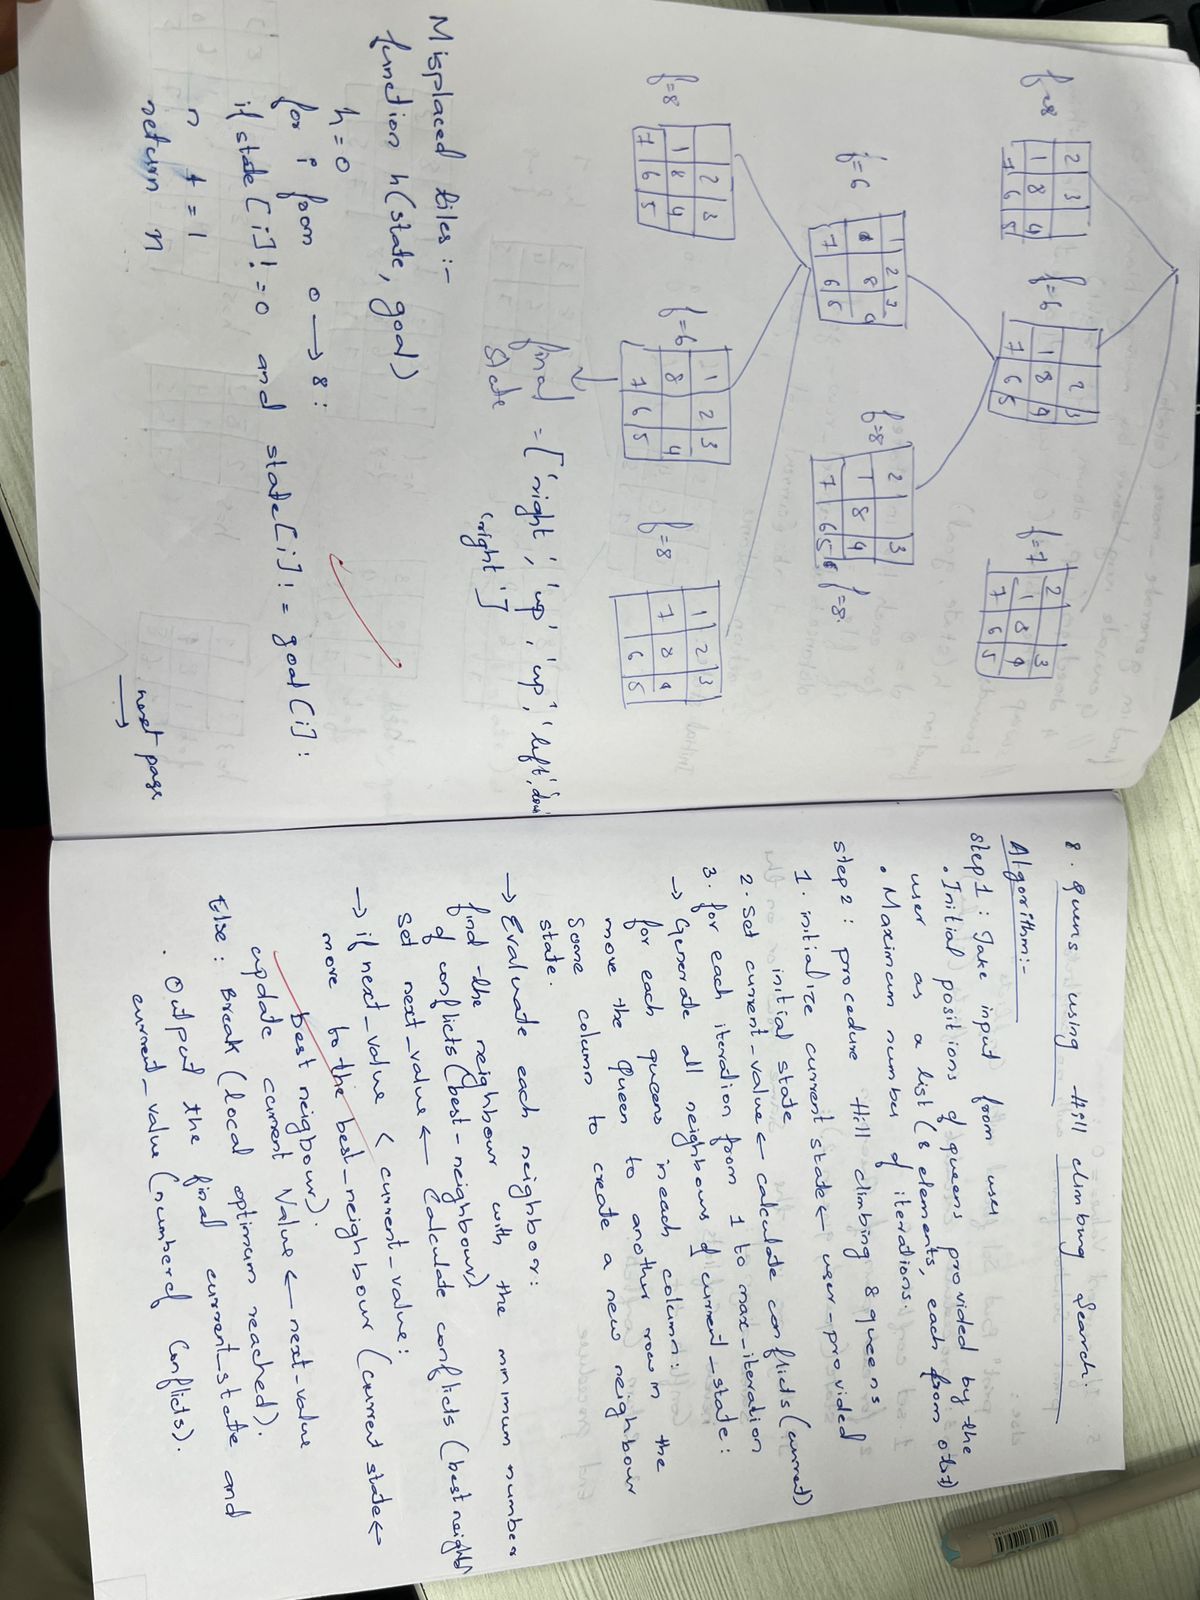 f=8
2 3
1 8 4
7 6 5
f=6
2 3
1 8 4
7 6 5
f=7
2 3
1 8 4
7 6 5
f=6
1 2 3
8 4
7 6 5
f=8
2 3
1 8 4
7 6 5
f=8.
f=8
2 3
1 8 4
7 6 5
f=6
1 2 3
8 4
7 6 5
f=8
1 2 3
7 8 4
6 5
final state = ['right', 'up', 'up', 'left', 'down'
'right']
Misplaced tiles :-
function h(state, goal)
h=0
for i from 0 → 8 :
if state[i] != 0 and state[i] != goal[i] :
n + = 1
return n
next page
→
8. Queens using Hill climbing Search:
Algorithm:-
step 1 : Take input from user
• Initial positions of queens provided by the
user as a list (8 elements, each from 0to7)
• Maximum number of iterations.
step 2 : procedure Hill climbing 8 queens
1. initialize current state ← user-provided
initial state
2. Set current-value ← calculate conflicts (current)
3. for each iteration from 1 to max-iteration
→ Generate all neighbours of current-state :
for each queens in each column :
move the Queen to another row in the
Same column to create a new neighbour
state.
→ Evaluate each neighbour :
find the neighbour with the minimum number
of conflicts (best-neighbour)
set next_value ← Calculate conflicts (best neighb
→ if next_value < current_value :
move to the best_neighbour (current state ←
best neigbour).
update current Value ← next-value
Else : Break (local optimum reached).
. Output the final current_state and
current_value (number of Conflicts).